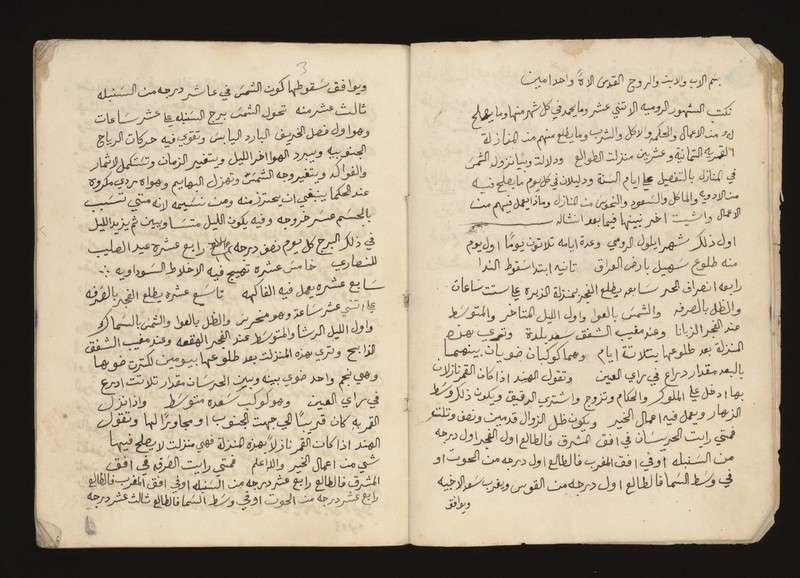 بسم الاب والابن والروح القدس الاهً واحدا امين
نكت الشهور الروميه الاتني عشر وما يحمد في كل شهر منها وما يصلح
فيه من الاعمال والحكم والاكل والشرب وما يطلع منهم من المنازلة
القمريه التمانية وعشرين منزلت الطوالع ودلالات وبيا نزول الشمس
في المنازل بالتفصيل علي ايام السنة ودليلان في كل يوم ما يصلح فيه
من الادويه والماكل والسعود والنحوس من المنازل وماذا يعمل فيهم من
الاعمال واشيت اخر نبينها فيما بعد انشالله
اول ذلك شهر ايلول الرومي وعدة ايامه تلاتون يومًا اول يوم
منه طلوع سهيل بارض العراق تانيه ابتدا سقوط الندا
رابعه انصراف الحر سابعه يطلع الفجر بمنزلة الزبره علي ست ساعات
والظل بالصرفه والشمس بالعوا واول الليل المتاخر والمتوسط
عند الفجر الزبانا وعند مغيب الشفق سعد بلدة وتري بهده
المنزلة بعد طلوعها بتلاتة ايام وهما كوكبان ضويان بينهما
بالبعد مقدار دراع في راي العين وتقول الهند اذا كان القمر نازلا
بها ادخل علي الملوك والحكام وتزوج واشتري الرقيق ويكون ذلك وسط
النهار ويعمل فيه اعمال الخير ويكون ظل الزوال قدمين ونصف وتلت
فمتي رايت الخرسان في افق المشرق فالطالع اول الفجر اول درجه
من السنبله او في افق المغرب فالطالع اول درجه من الحوت او
في وسط السما فالطالع اول درجه من القوس ويغرب سعد الاخبيه
ويوافق
3
ويوافق سقوطها كون الشمس في عاشر درجه من السنبله
ثالث عشر منه تحول الشمس برج السنبله علي عشر ساعات
وهو اول فصل الخريف البارد اليابس وتقوي فيه حركات الرياح
الجنوبيه ويبرد الهوا اخر الليل ويتغير الزمان وتستكمل الاثمار
والفواكه ويتغير وجه الشمس وتهزل البهايم وهواه ردي مكروه
عند الحكما ينبغي ان يحترز منه ومن نسيمه لانه متي تنسب
بالجسم عسر خروجه وفيه يكون الليل متساويين ثم يزيد الليل
في ذلك البرج كل يوم نصف درجه رابع عشره عيد الصليب
للنصاري خامس عشره تهيج فيه الاخلاط السوداويه
سابع عشره يعمل فيه الفاكهه تاسع عشره يطلع الفجر بالصرفه
علي اتني عشر ساعة وهو منحرس والظل بالعوا والشمس بالسماك
واول الليل الرشا والمتوسط عند الفجر الهقعه وعند مغيب الشفق
الذابح وتري بهده المنزلت بعد طلوعها بيومين لكترت ضويها
وهي نجم واحد ضوي بينه وبين الخرسان مقدار تلاتت ادرع
في راي العين وهو كوكب سعده متوسط واذا نزل
القمر به كان قريبًا الي جهت الجنوب او مجاورًا لها وتقول
الهند اذا كان القمر نازلاً بهده المنزلة فهي منزلت لا يصلح فيها
شي من اعمال الخير والله اعلم فمتي رايت الصرفه في افق
المشرق فالطالع رابع عشر درجه من السنبله او في افق المغرب فالطالع
رابع عشر درجه من الحوت او في وسط السما فالطالع ثالث عشر درجه